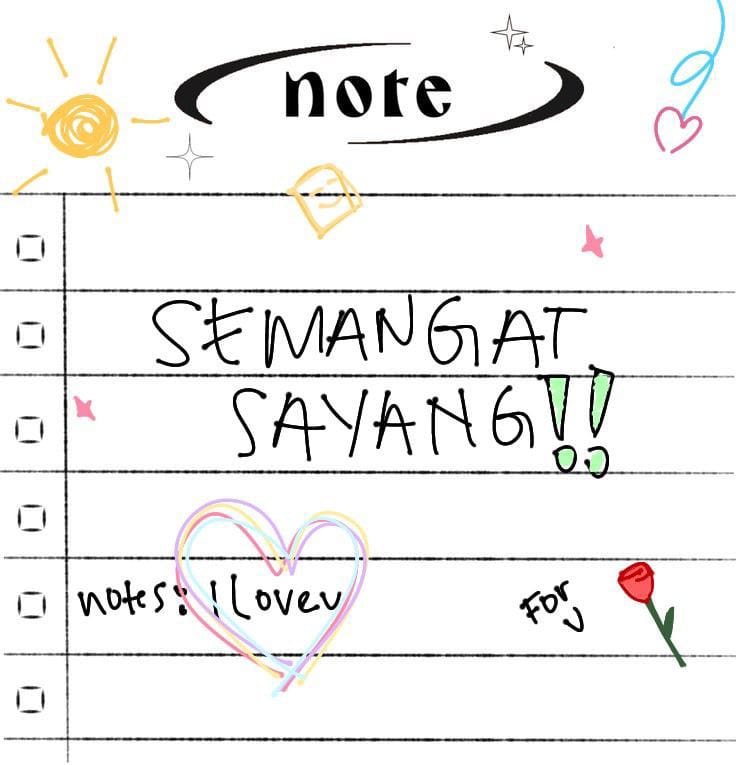 note
SEMANGAT
SAYANG!!
notes: I Loveu
For U